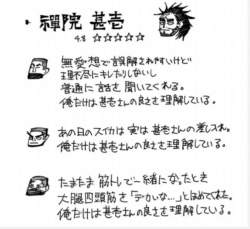 禪院 甚壱
4.8 ☆☆☆☆☆
無愛想で誤解されやすいけど
理不尽にキレたりしないし
普通に話を聞いてくれる。
俺だけは甚壱さんの良さを理解している。
あの日のスイカは実は甚壱さんの差し入れ。
俺だけは甚壱さんの良さを理解している。
たまたま筋トレで一緒になったとき
大腿四頭筋を「デカいな…」とほめてくれた。
俺だけは甚壱さんの良さを理解している。